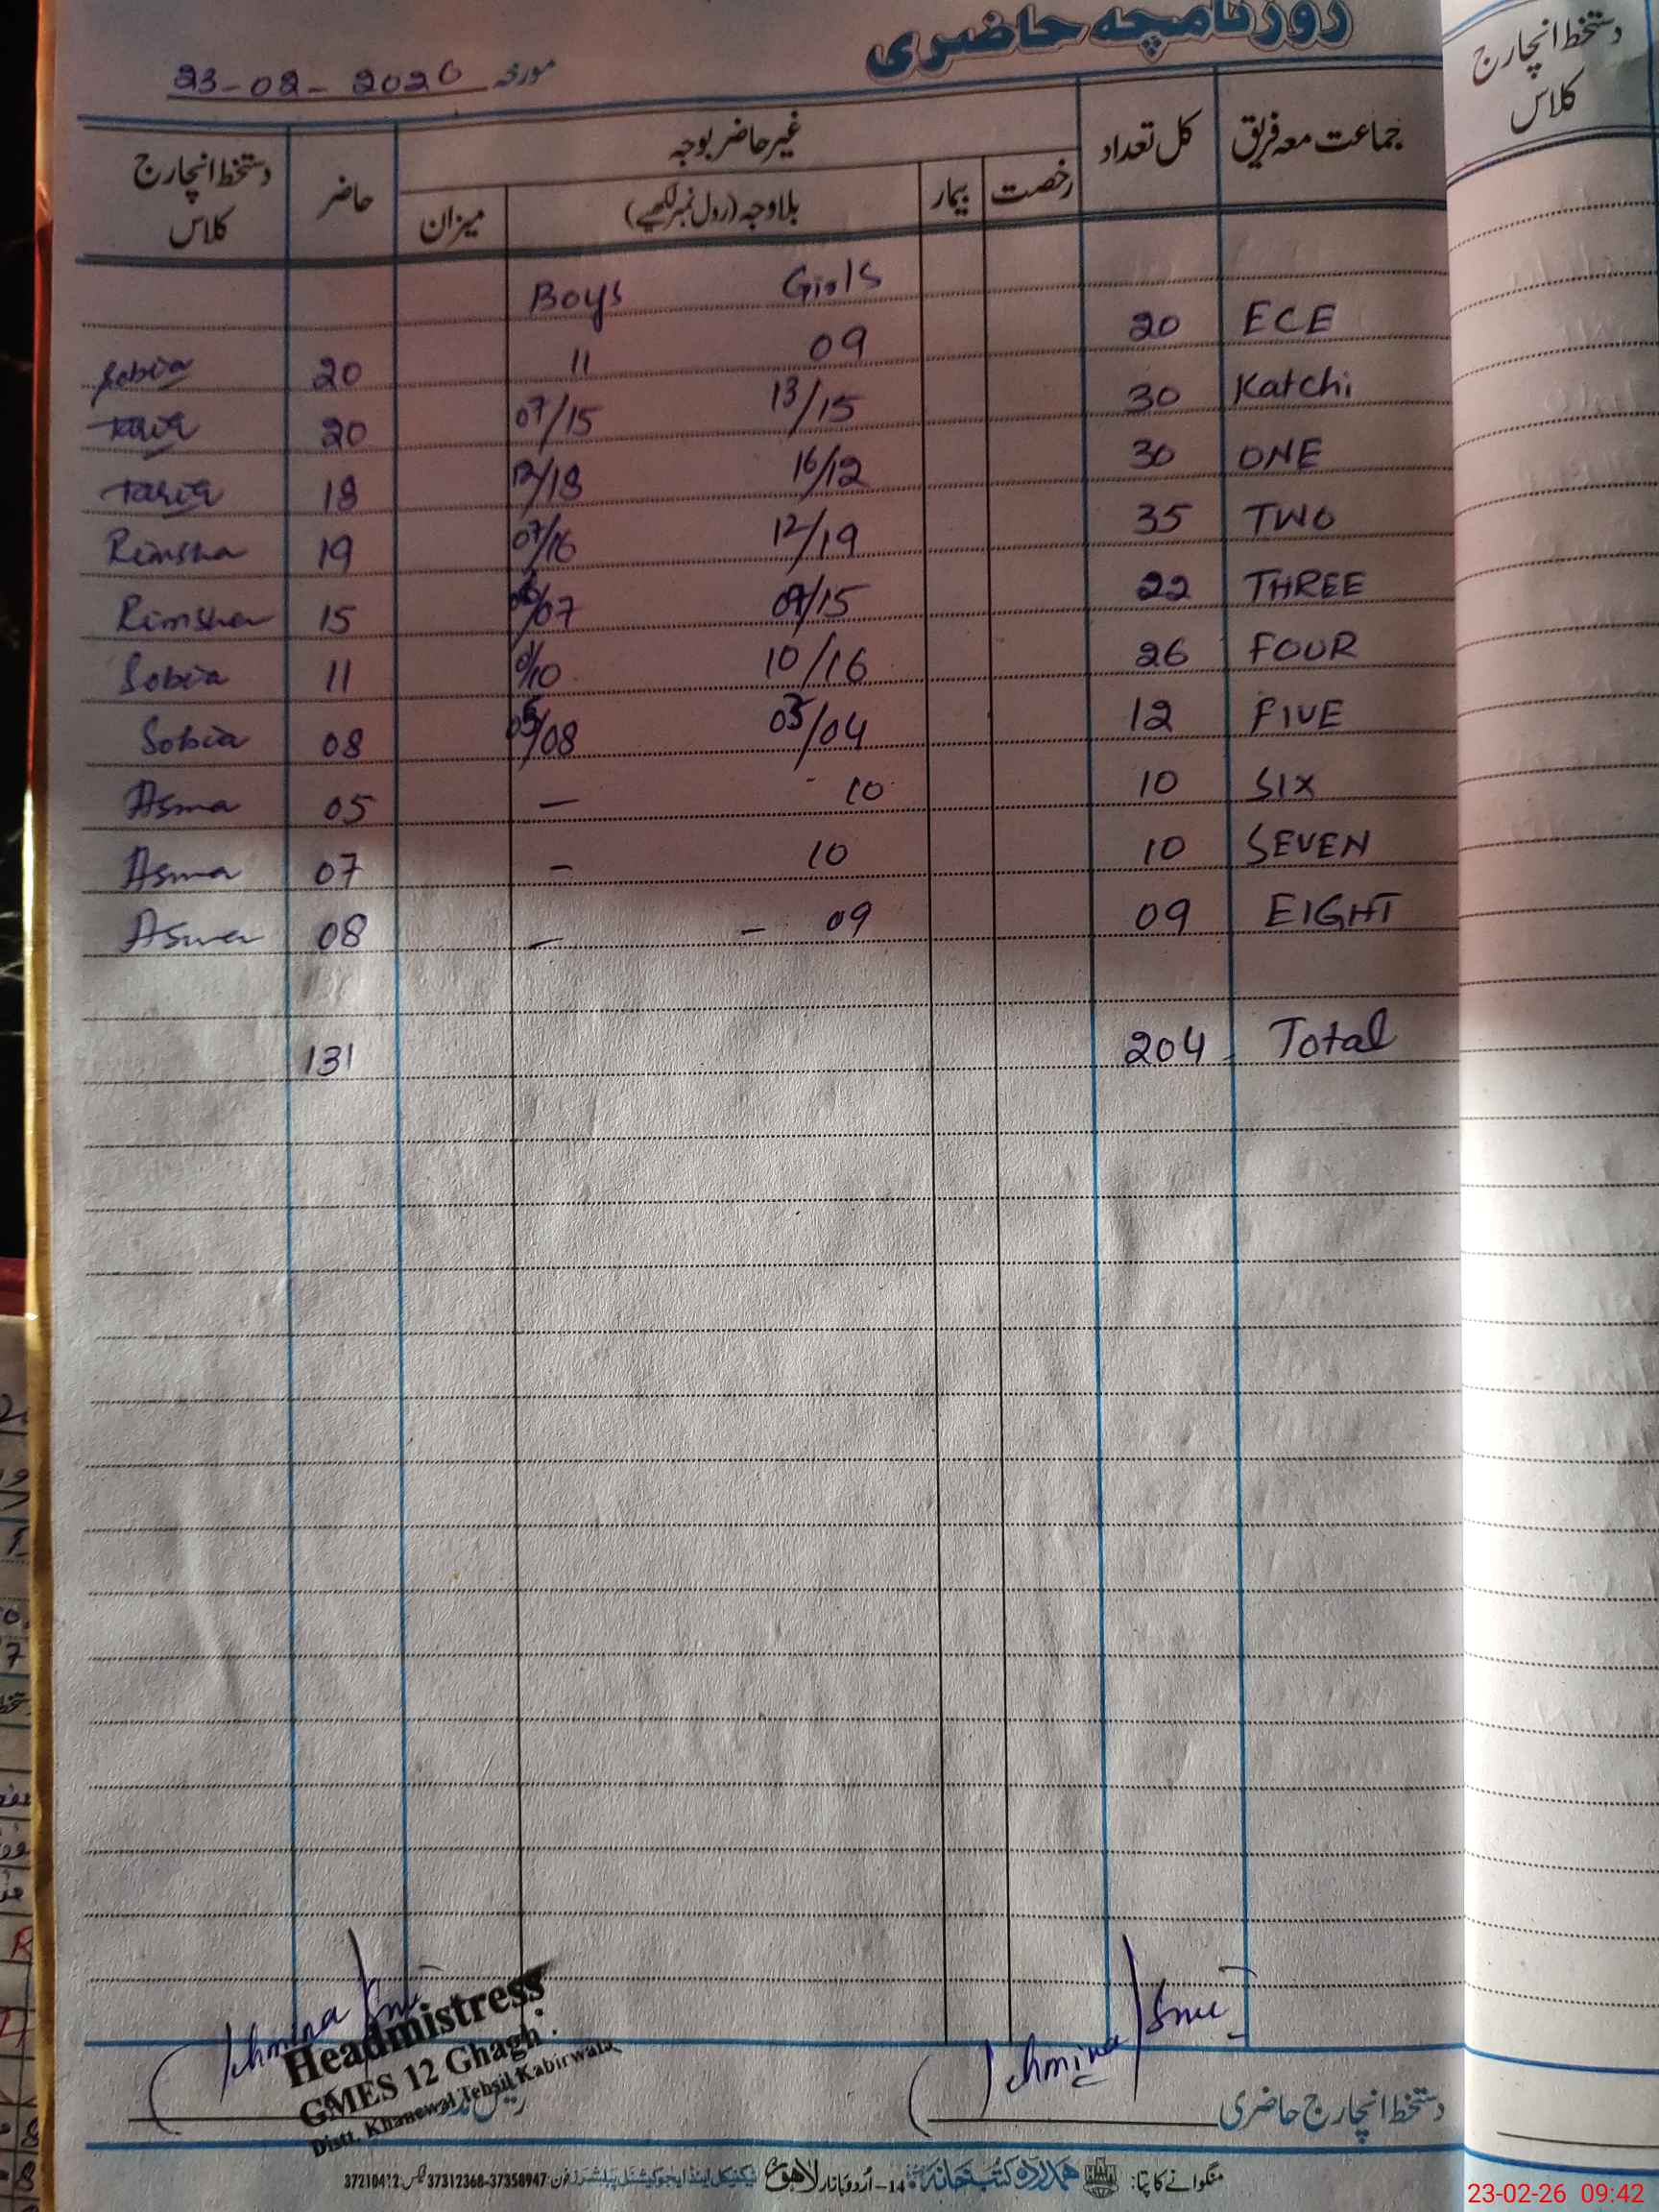 روزنامچہ حاضری
مورخہ 23-02-2026
جماعت معہ فریق کل تعداد غیر حاضر بوجہ حاضر دستخط انچارج کلاس
رخصت بیمار بلاوجہ (رول نمبر لکھیے) میزان
دستخط انچارج
کلاس
Boys Girls
Sobia 20 11 09 20 ECE
Tariq 20 07/15 13/15 30 Katchi
Tariq 18 12/18 16/12 30 ONE
Rimsha 19 07/16 12/19 35 TWO
Rimsha 15 /07 /15 22 THREE
Sobia 11 /10 10/16 26 FOUR
Sobia 08 /08 03/04 12 FIVE
Asma 05 — 10 10 SIX
Asma 07 – 10 10 SEVEN
Asma 08 – – 09 09 EIGHT
131 204 Total
Headmistress
GMES 12 Ghagh
Distt. Khanewal Tehsil Kabirwala
دستخط انچارج حاضری
منگوانے کا پتا: ہمدرد کتب خانہ 14-اُردو بازار لاہور ٹیکنیکل اینڈ ایجوکیشنل پبلشرز فون 37358947-37312368 فیکس: 37210412
23-02-26 09:42